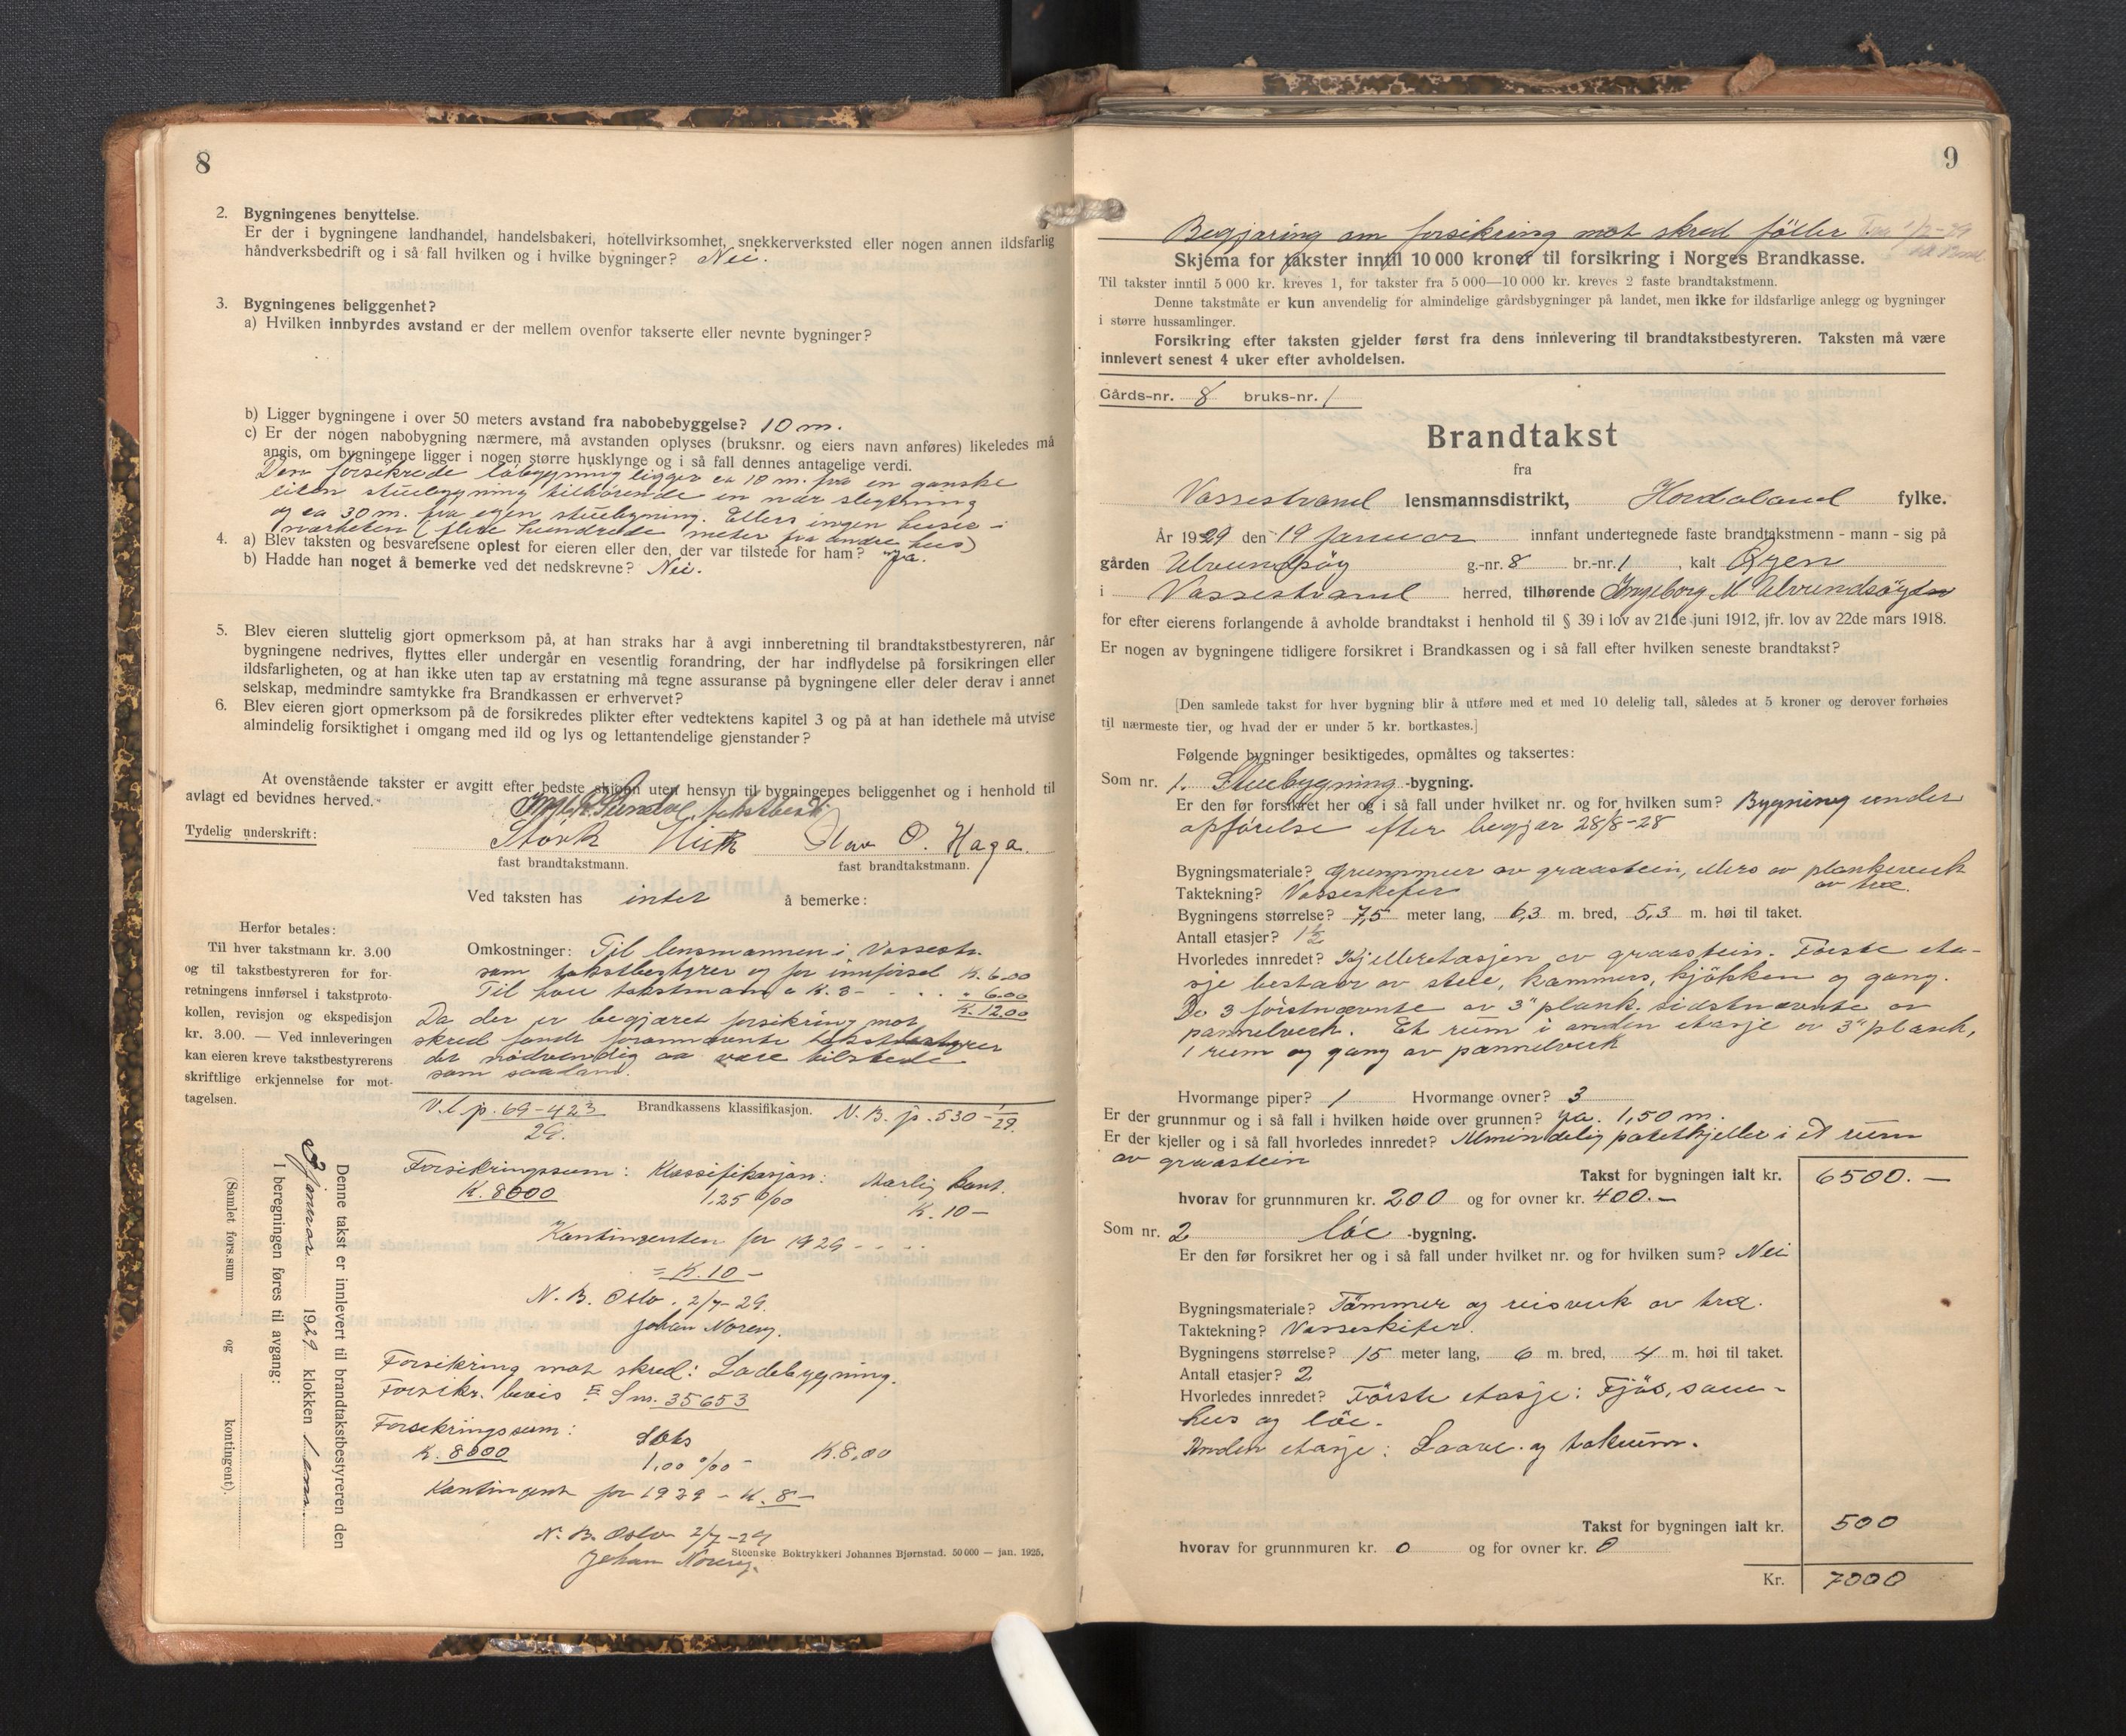 8
2. Bygningenes benyttelse.
Er der i bygningene landhandel, handelsbakeri, hotellvirksomhet, snekkerverksted eller nogen annen ildsfarlig
håndverksbedrift og i så fall hvilken og i hvilke bygninger? Nei.
3. Bygningenes beliggenhet?
a) Hvilken innbyrdes avstand er der mellem ovenfor takserte eller nevnte bygninger?
b) Ligger bygningene i over 50 meters avstand fra nabobebyggelse? 10 m.
c) Er der nogen nabobygning nærmere, må avstanden oplyses (bruksnr. og eiers navn anføres) likeledes må
angis, om bygningene ligger i nogen større husklynge og i så fall dennes antagelige verdi.
Den forsikrede løbygning ligger ca 10 m. fra en ganske
liten stuebygning tilhørende en nær slegtning
og ca 30 m. fra egen stuebygning. Ellers ingen huse i
nærheten (flere hundrede meter fra andre hus)
4. a) Blev taksten og besvarelsene oplest for eieren eller den, der var tilstede for ham? "Ja.
b) Hadde han noget å bemerke ved det nedskrevne? Nei.
5. Blev eieren sluttelig gjort opmerksom på, at han straks har å avgi innberetning til brandtakstbestyreren, når
bygningene nedrives, flyttes eller undergår en vesentlig forandring, der har indflydelse på forsikringen eller
ildsfarligheten, og at han ikke uten tap av erstatning må tegne assuranse på bygningene eller deler derav i annet
selskap, medmindre samtykke fra Brandkassen er erhvervet?
6. Blev eieren gjort opmerksom på de forsikredes plikter efter vedtektens kapitel 3 og på at han idethele må utvise
almindelig forsiktighet i omgang med ild og lys og lettantendelige gjenstander?
At ovenstående takster er avgitt efter bedste skjønn uten hensyn til bygningenes beliggenhet og i henhold til
avlagt ed bevidnes herved.
takstbest.
Tydelig underskrift:
Olav O. Haga.
fast brandtakstmann. fast brandtakstmann.
Ved taksten has intet å bemerke:
Herfor betales:
Til hver takstmann kr. 3.00
og til takstbestyreren for for-
retningens innførsel i takstproto-
kollen, revisjon og ekspedisjon
kr. 3.00. — Ved innleveringen
kan eieren kreve takstbestyrerens
skriftlige erkjennelse for mot-
tagelsen.
Omkostninger: Til lensmannen i Vossestr.
som takstbestyrer og for innførsel K. 6.00
Til två takstmænd a K. 3 - . . . " 6.00
K. 12.00
Da der er begjæret forsikring mot
skred fandt forannævnte takstbestyrer
det nødvendig aa være tilstede
som saadan.
V.l. p. 69-423 Brandkassens klassifikasjon. N. B. jr. 530-1/29.
29.
Forsikringssum: Klassifikasjon: Aarlig kont.
K. 8000 1.25 0/00 K. 10-
Kontingenten for 1929 - - . .
= K. 10 -
N. B. Oslo. 2/7-29.
Johan Noreng.
Forsikring mot skred: Ladebygning.
Forsikr. bevis Sm. 35653
Forsikringssum: Sats
K. 8000 1,00 0/00 - K. 8,00
Kontingent for 1929 - K. 8 -
N. B. Oslo 2/7-29
Johan Noreng.
Steenske Boktrykkeri Johannes Bjørnstad. 50 000 — jan. 1925.
Denne takst er innlevert til brandtakstbestyreren den
januar 1929 klokken
I beregningen føres til avgang:
(Samlet fors.sum og kontingent).
9
Begjæring om forsikring mot skred føller
Skjema for takster inntil 10 000 kroner til forsikring i Norges Brandkasse.
Til takster inntil 5 000 kr. kreves 1, for takster fra 5 000—10 000 kr. kreves 2 faste brandtakstmenn.
Denne takstmåte er kun anvendelig for almindelige gårdsbygninger på landet, men ikke for ildsfarlige anlegg og bygninger
i større hussamlinger.
Forsikring efter taksten gjelder først fra dens innlevering til brandtakstbestyreren. Taksten må være
innlevert senest 4 uker efter avholdelsen.
Gårds-nr. 8 bruks-nr. 1
Brandtakst
fra
Vossestrand lensmannsdistrikt, Hordaland fylke.
År 1929 den 19 januar innfant undertegnede faste brandtakstmenn - mann - sig på
gården Ulvundsøy g.-nr. 8 br.-nr. 1, kalt Øyen
i Vossestrand herred, tilhørende Ingeborg M Ulvundsøyen
for efter eierens forlangende å avholde brandtakst i henhold til § 39 i lov av 21de juni 1912, jfr. lov av 22de mars 1918.
Er nogen av bygningene tidligere forsikret i Brandkassen og i så fall efter hvilken seneste brandtakst?
[Den samlede takst for hver bygning blir å utføre med et med 10 delelig tall, således at 5 kroner og derover forhøies
til nærmeste tier, og hvad der er under 5 kr. bortkastes.]
Følgende bygninger besiktigedes, opmåltes og taksertes:
Som nr. 1. Stuebygning -bygning.
Er den før forsikret her og i så fall under hvilket nr. og for hvilken sum? Bygning under
opførelse efter begjær 28/8-28
Bygningsmateriale? Grummur av graastein, ellers av plankeverk
av træ.
Taktekning? Vosseskifer
Bygningens størrelse? 7,5 meter lang, 6,3 m. bred, 5,3 m. høi til taket.
Antall etasjer? 1 1/2
Hvorledes innredet? Kjelleretasjen av graastein. Første eta-
sje bestaar av stue, kammers, kjøkken og gang.
De 3 førstnævnte av 3" plank. sidstnævnte av
pannelverk. Et rum i anden etasje av 3" plank,
1 rum og gang av pannelverk
Hvormange piper? 1 Hvormange ovner? 3
Er der grunnmur og i så fall i hvilken høide over grunnen? Ja. 1,50 m.
Er der kjeller og i så fall hvorledes innredet? Almindelig potetkjeller i et rum
av graastein
Takst for bygningen ialt kr. 6500. —
hvorav for grunnmuren kr. 200 og for ovner kr. 400. —
Som nr. 2 løe -bygning.
Er den før forsikret her og i så fall under hvilket nr. og for hvilken sum? Nei
Bygningsmateriale? Tømmer og reisverk av træ.
Taktekning? Vosseskifer.
Bygningens størrelse? 15 meter lang, 6 m. bred, 4 m. høi til taket.
Antall etasjer? 2
Hvorledes innredet? Første etasje: Fjøs, saue-
hus og løe.
Anden etasje: Laave og takrum.
Takst for bygningen ialt kr. 500
hvorav for grunnmuren kr. 0 og for ovner kr. 0
Kr. 7000